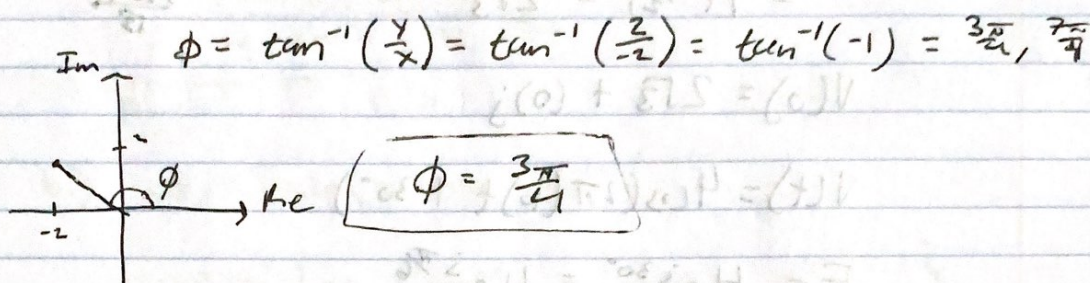 ϕ = tan⁻¹(y/x) = tan⁻¹(2/-2) = tan⁻¹(-1) = 3π/4, 7π/4
Im
ϕ
Re
-2
ϕ = 3π/4